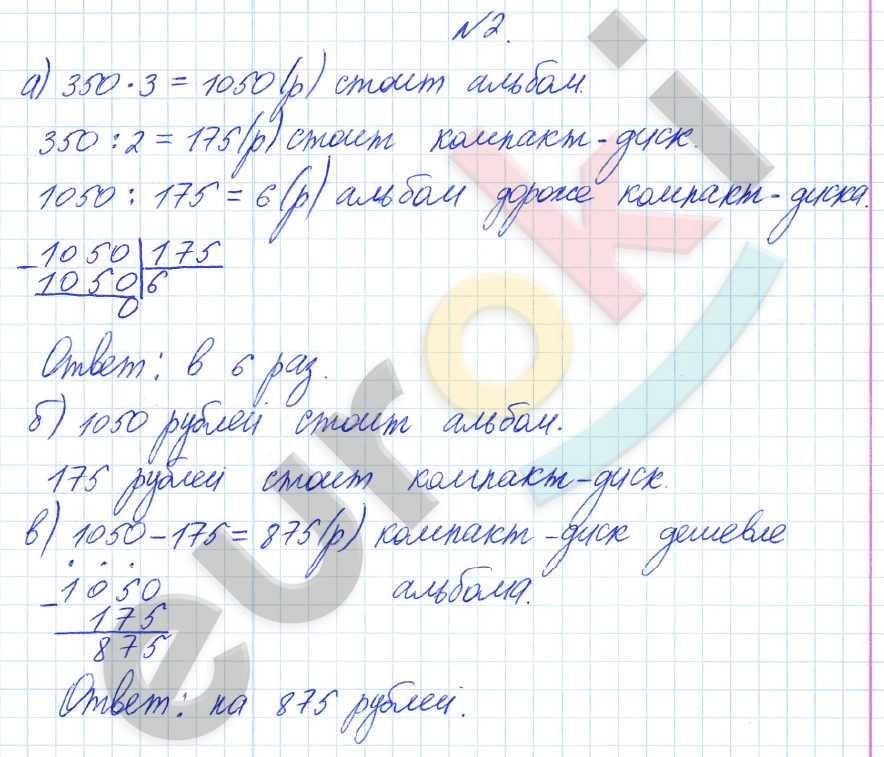 №2.
а) 350 · 3 = 1050 (р) стоит альбом.
350 : 2 = 175 (р) стоит компакт-диск.
1050 : 175 = 6 (р) альбом дороже компакт-диска.
-1050|175
1050|6
0
Ответ: в 6 раз.
б) 1050 рублей стоит альбом.
175 рублей стоит компакт-диск.
в) 1050 - 175 = 875 (р) компакт-диск дешевле
альбома.
-1050
175
875
Ответ: на 875 рублей.
euroki